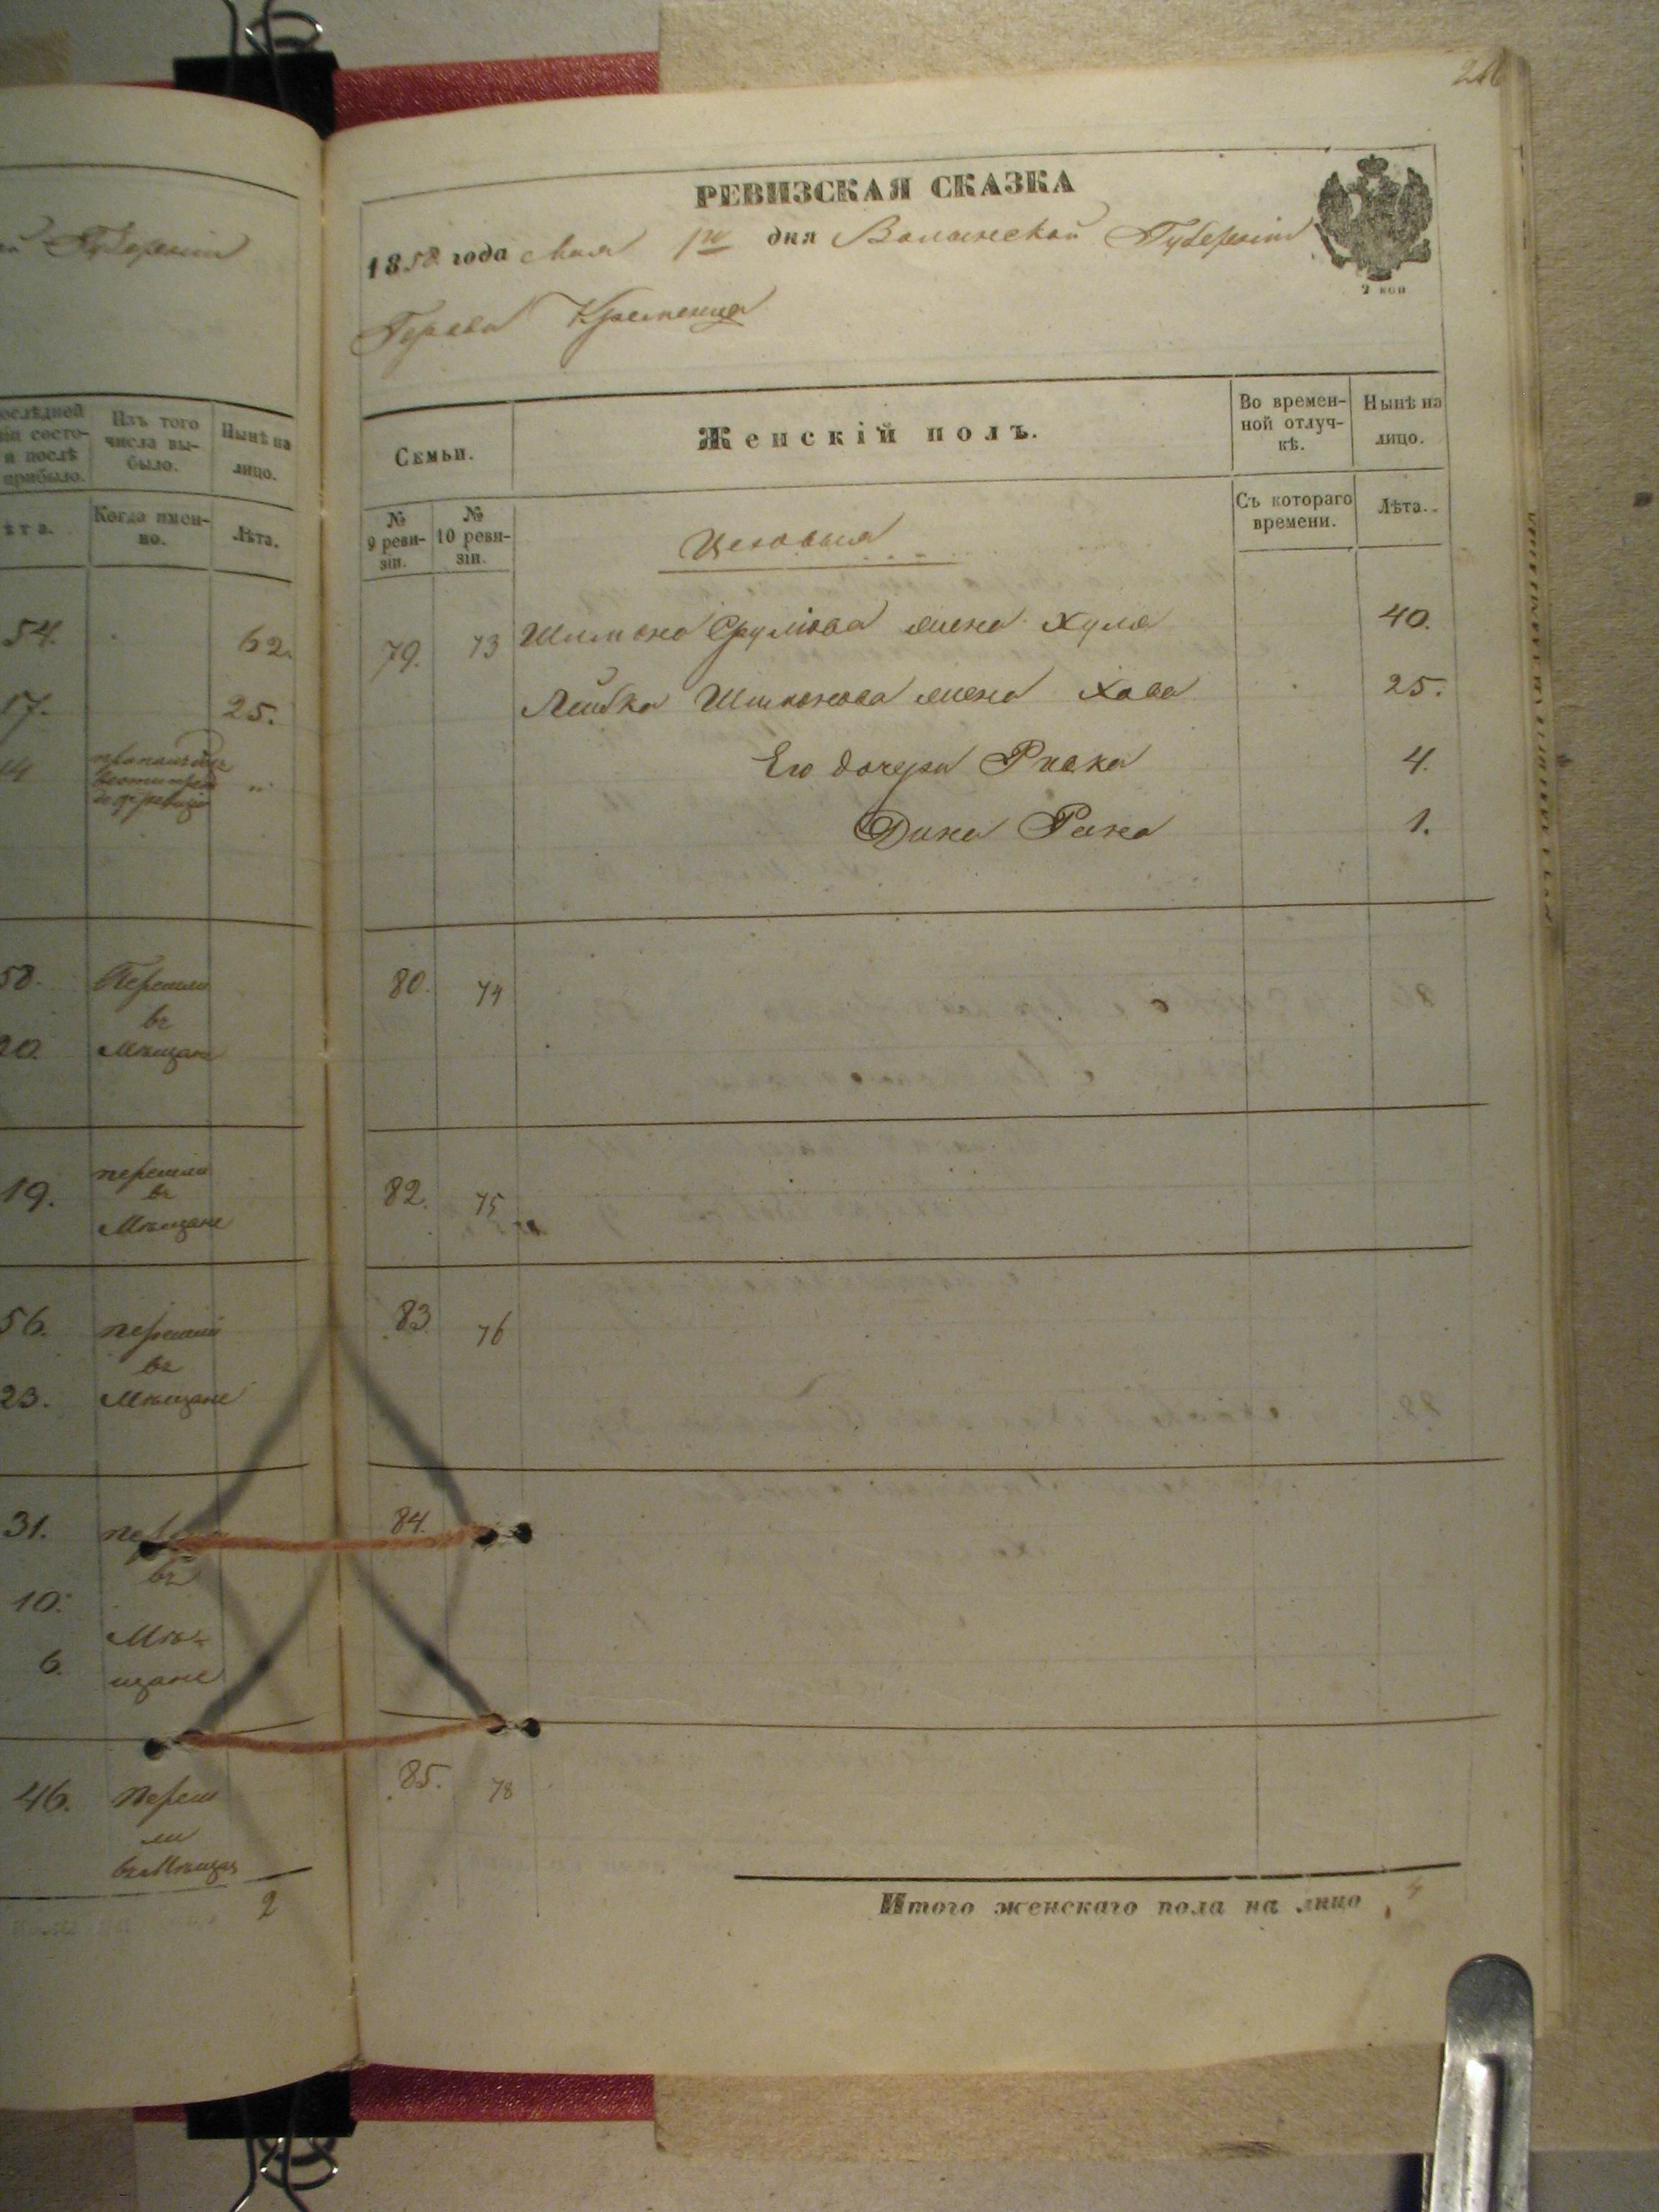 Губерніи
ослѣдней
іи состо-
и послѣ
прибыло.
Изъ того
числа вы-
было.
Нынѣ на
лицо.
ѣта.
Когда имен-
но.
Лѣта.
54. 62.
17. 25.
58. Перешли
въ
20. Мѣщане
19. перешли
въ
Мѣщане
56. перешли
въ
23. Мѣщане
31.
въ
10.
Мѣ-
6. щане
46. Переш
ли
въ Мѣщан
2
РЕВИЗСКАЯ СКАЗКА
1858 года Мая 1го дня Волынской Губерніи
2 коп
Города Кременца
Семьи.
Женскій полъ.
Во времен-
ной отлуч-
кѣ.
Нынѣ на
лицо.
№
9 реви-
зіи.
№
10 реви-
зіи.
Съ котораго
времени.
Лѣта.
Цеховыя
79. 73 Шимона Срулiова жена Хума 40.
Лейбка Шимонова жена Хава 25.
Его дочери Ривка 4.
Дина Раня 1.
80. 74
82. 75
83. 76
84.
85. 78
Итого женскаго пола на лицо 4